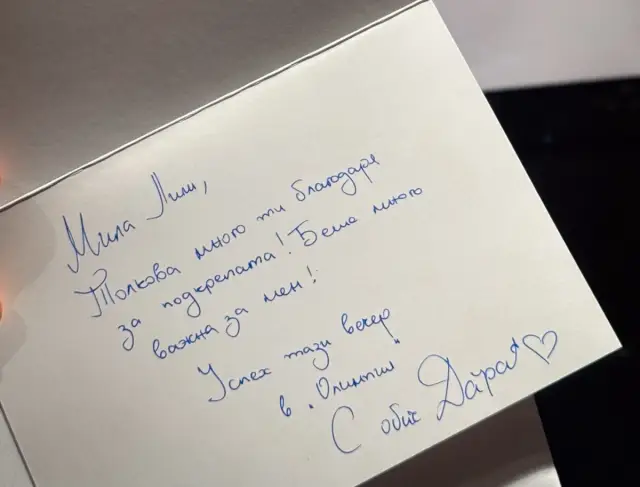 Мила Лили,
Толкова много ти благодаря
за подкрепата! Беше много
важна за мен!
Успех тази вечер
в "Олимпия"
С обич Дара